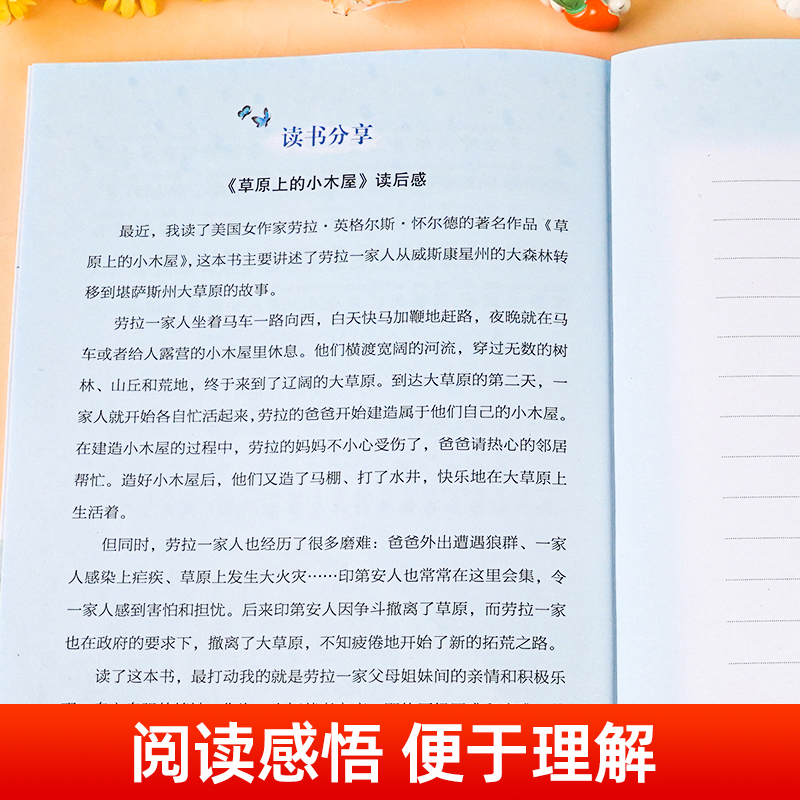 读书分享
《草原上的小木屋》读后感
最近，我读了美国女作家劳拉·英格尔斯·怀尔德的著名作品《草
原上的小木屋》，这本书主要讲述了劳拉一家人从威斯康星州的大森林转
移到堪萨斯州大草原的故事。
劳拉一家人坐着马车一路向西，白天快马加鞭地赶路，夜晚就在马
车或者给人露营的小木屋里休息。他们横渡宽阔的河流，穿过无数的树
林、山丘和荒地，终于来到了辽阔的大草原。到达大草原的第二天，一
家人就开始各自忙活起来，劳拉的爸爸开始建造属于他们自己的小木屋。
在建造小木屋的过程中，劳拉的妈妈不小心受伤了，爸爸请热心的邻居
帮忙。造好小木屋后，他们又造了马棚、打了水井，快乐地在大草原上
生活着。
但同时，劳拉一家人也经历了很多磨难：爸爸外出遭遇狼群、一家
人感染上疟疾、草原上发生大火灾……印第安人也常常在这里会集，令
一家人感到害怕和担忧。后来印第安人因争斗撤离了草原，而劳拉一家
也在政府的要求下，撤离了大草原，不知疲倦地开始了新的拓荒之路。
读了这本书，最打动我的就是劳拉一家父母姐妹间的亲情和积极乐
阅读感悟 便于理解